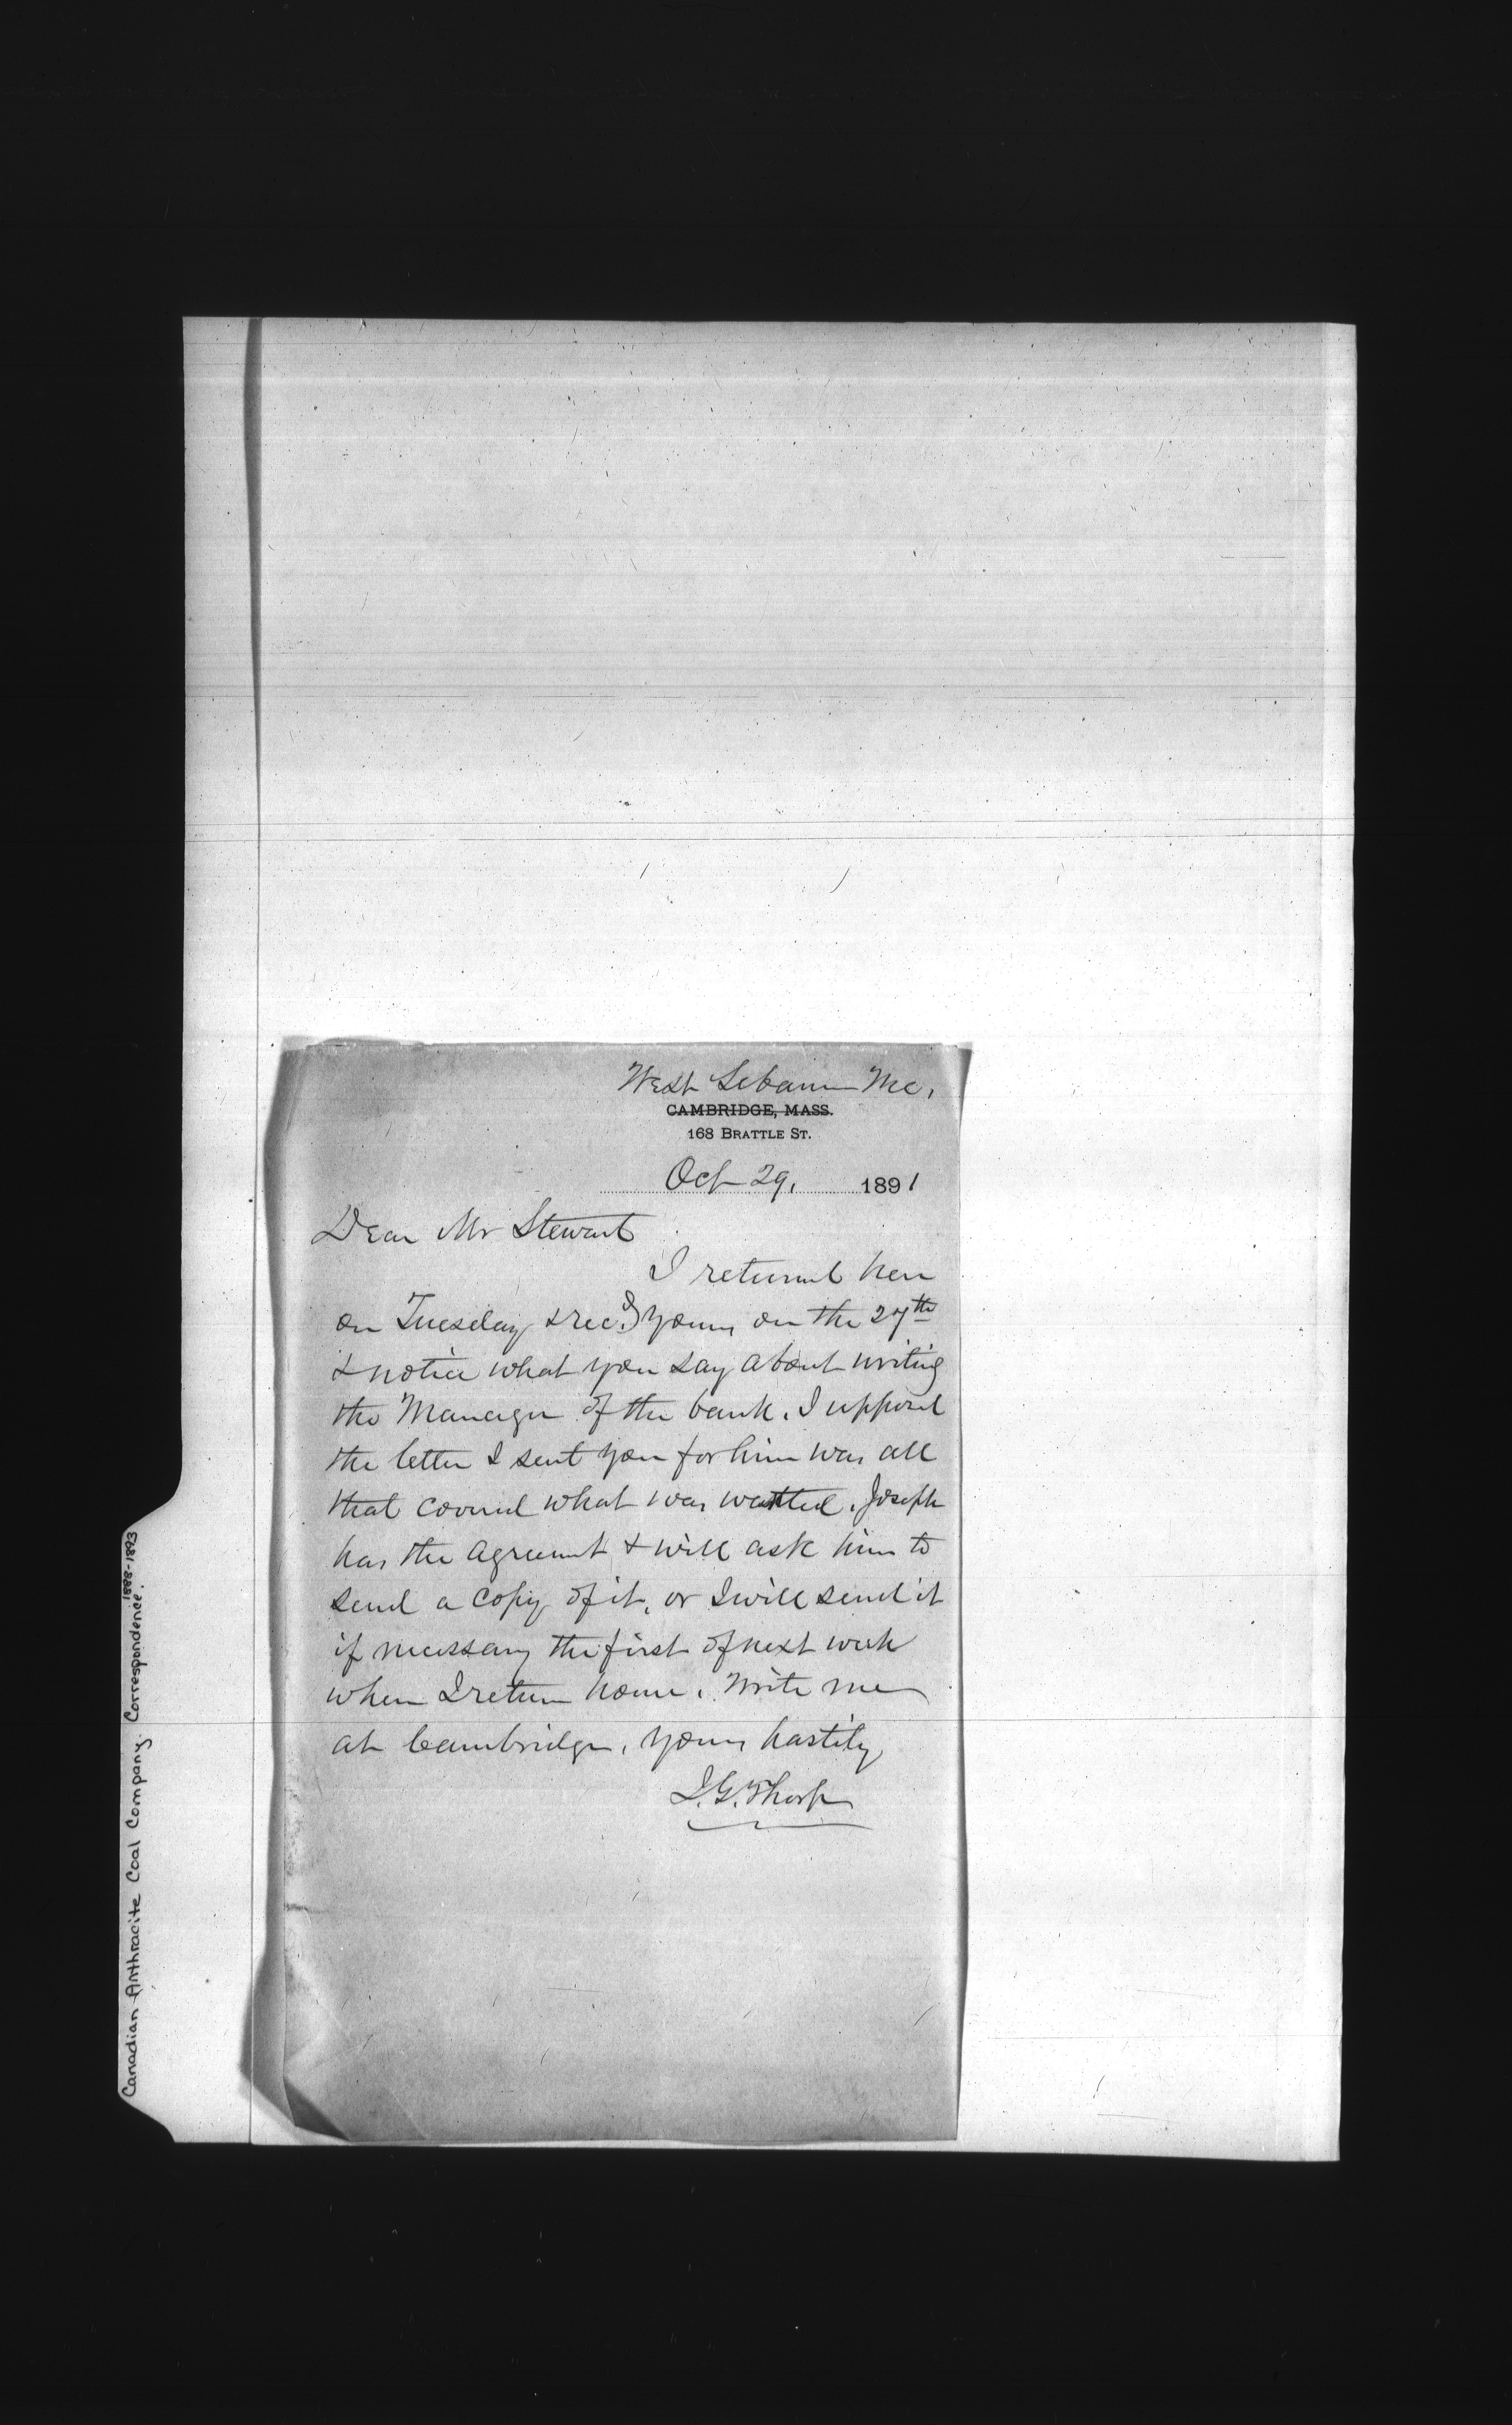 West Lebanon Me,
CAMBRIDGE, MASS.
168 BRATTLE ST.
Oct 29, 1891
Dear Mr Stewart
I returned here
on Tuesday & rec'd yours on the 27th
& notice what you say about writing
the Manager of the bank. I supposed
the letter I sent you for him was all
that covered what was wanted. Joseph
has the agreement & will ask him to
send a copy of it, or I will send it
if necessary the first of next week
when I return home. Write me
at Cambridge, yours hastily
J.G. Thorp
Canadian Anthracite Coal Company. Correspondence. 1888-1893